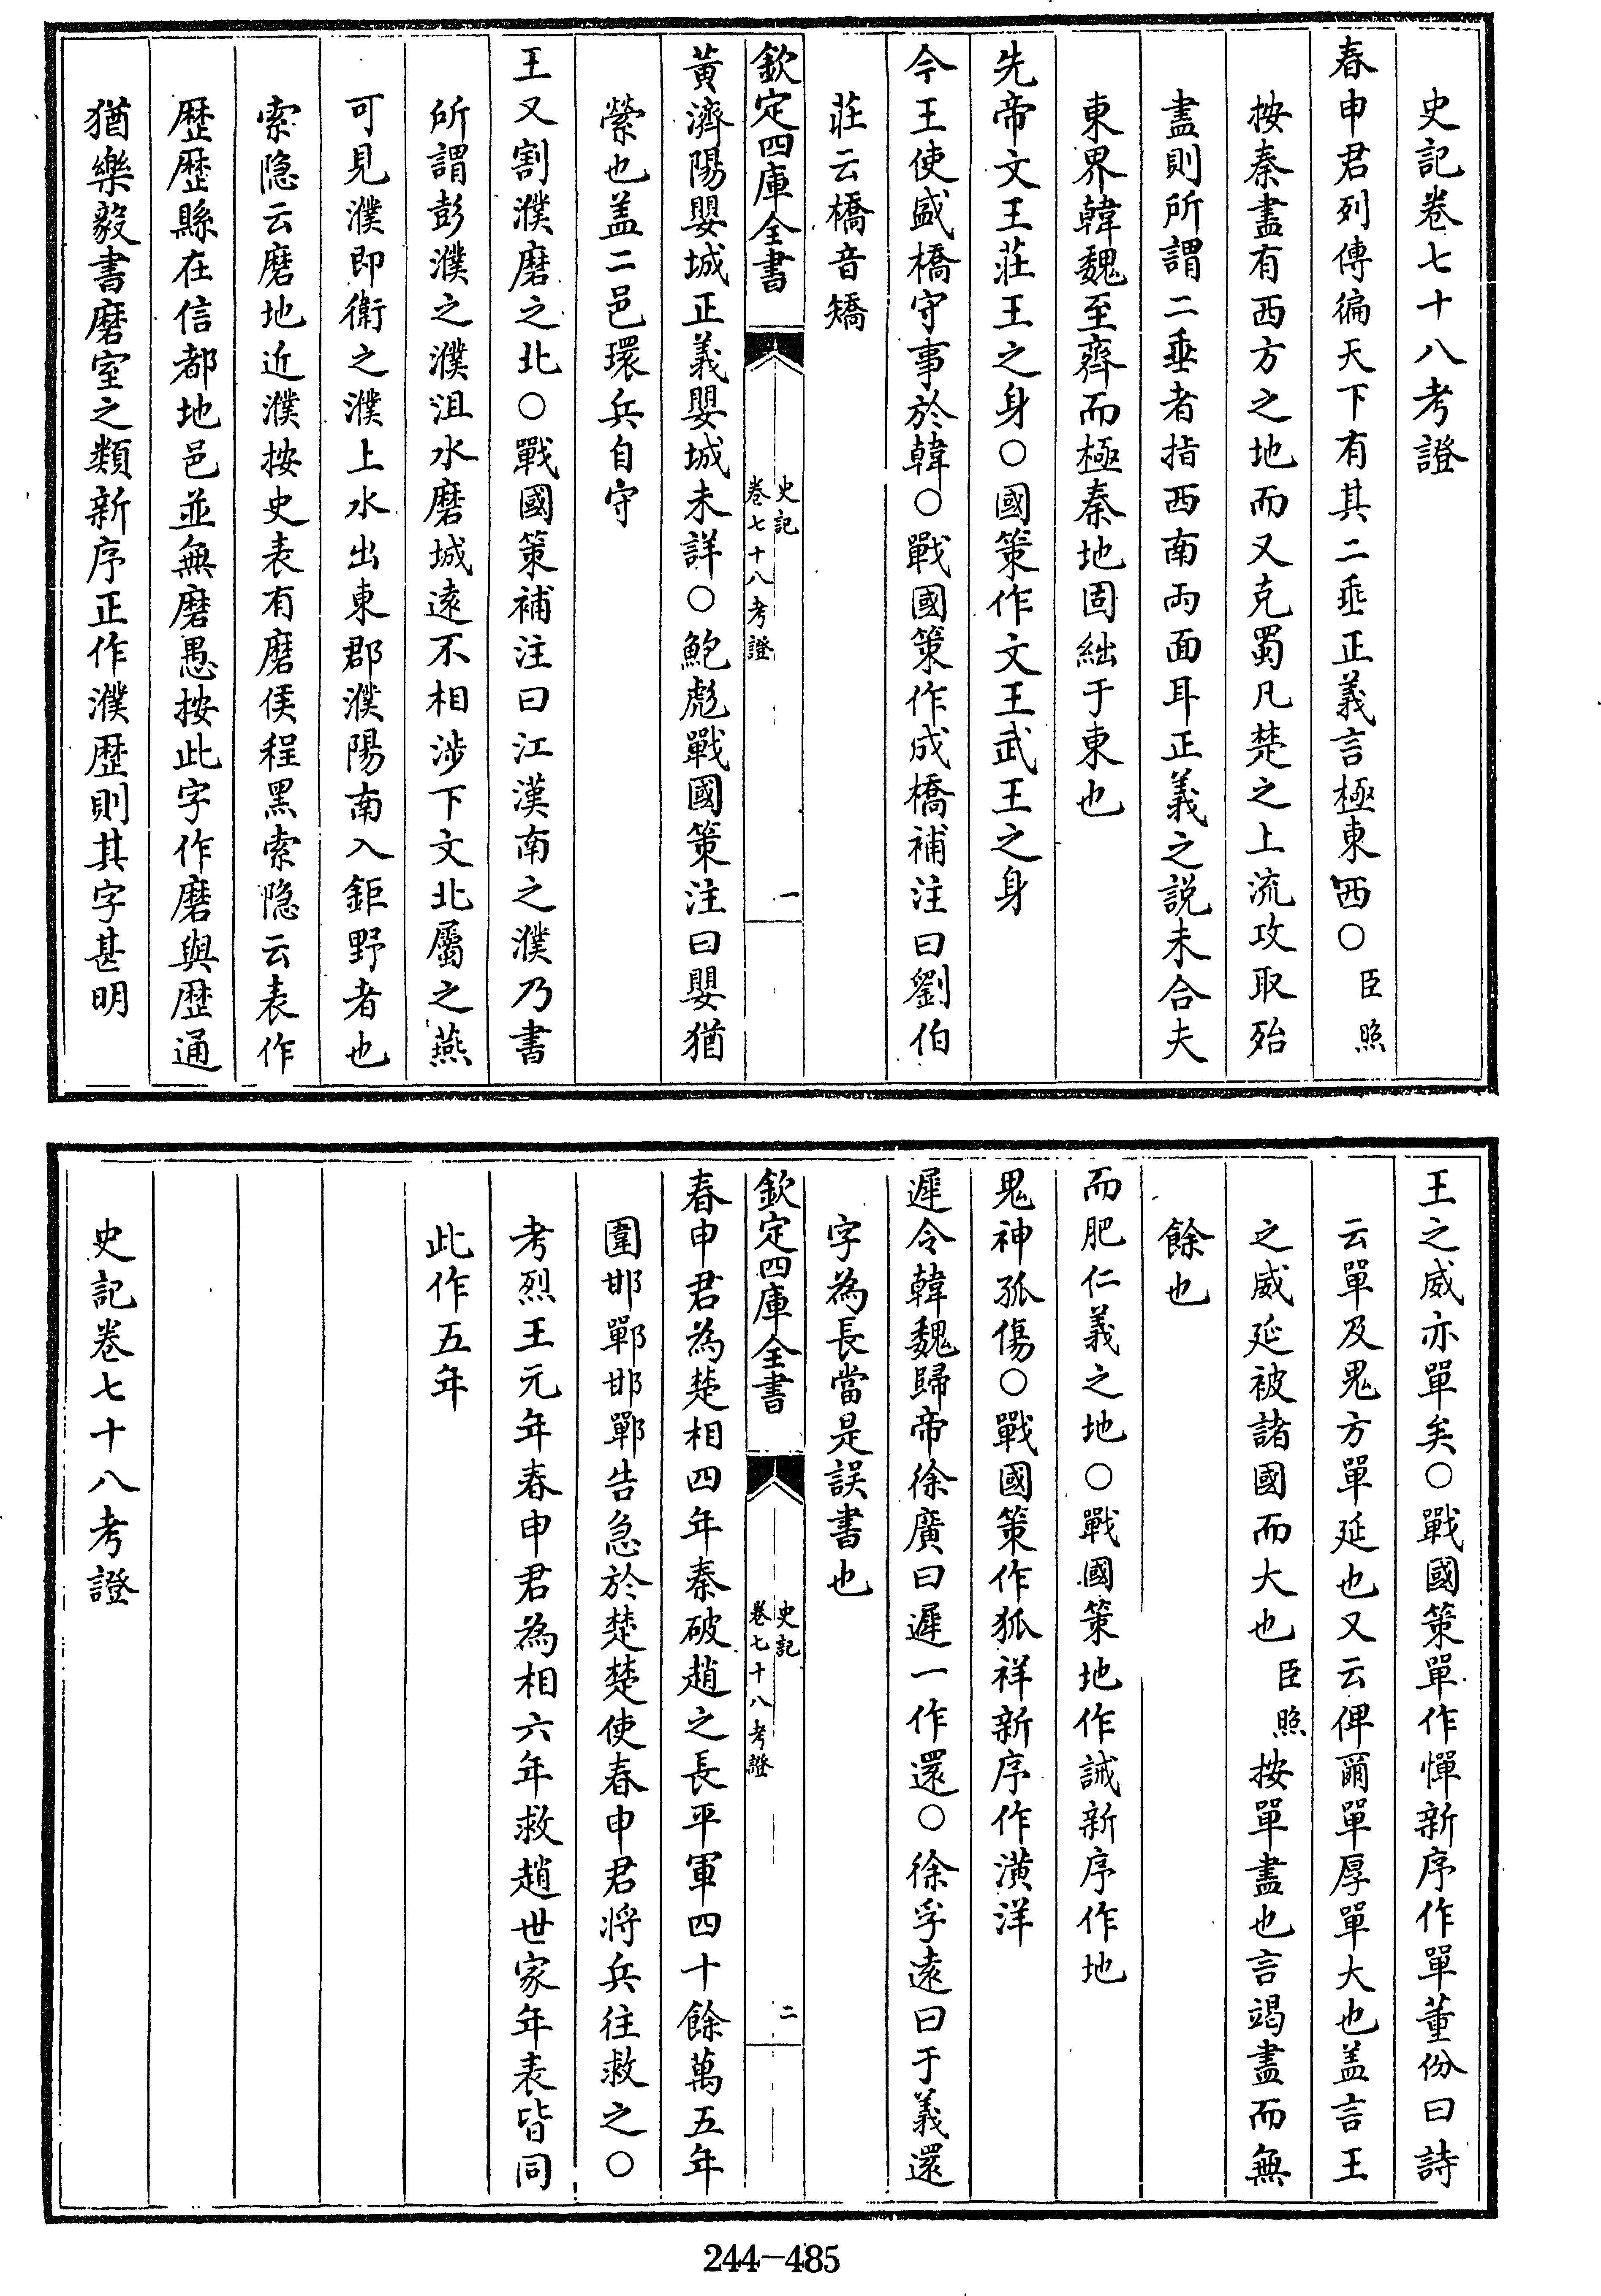 史記卷七十八考證
春申君列傳徧天下有其二垂正義言極東西○臣照
按秦盡有西方之地而又克蜀凡楚之上流攻取殆
盡則所謂二垂者指西南兩面耳正義之說未合夫
東界韓魏至齊而極秦地固絀于東也
先帝文王莊王之身○國策作文王武王之身
今王使盛橋守事於韓○戰國策作成橋補注曰劉伯
莊云橋音矯
欽定四庫全書
史記
卷七十八考證
一
黃濟陽嬰城正義嬰城未詳○鮑彪戰國策注曰嬰猶
縈也盖二邑環兵自守
王又割濮磨之北○戰國策補注曰江漢南之濮乃書
所謂彭濮之濮沮水磨城遠不相涉下文北屬之燕
可見濮即衛之濮上水出東郡濮陽南入鉅野者也
索隐云磨地近濮按史表有磨侯程黑索隐云表作
歷歷縣在信都地邑並無磨愚按此字作磨與歷通
猶樂毅書磨室之類新序正作濮歷則其字甚明
王之威亦單矣○戰國策單作憚新序作單董份曰詩
云單及鬼方單延也又云俾爾單厚單大也盖言王
之威延被諸國而大也臣照按單盡也言竭盡而無
餘也
而肥仁義之地○戰國策地作誡新序作地
鬼神孤傷○戰國策作狐祥新序作潢洋
遲令韓魏歸帝徐廣曰遲一作還○徐孚遠曰于義還
字為長當是誤書也
欽定四庫全書
史記
卷七十八考證
二
春申君為楚相四年秦破趙之長平軍四十餘萬五年
圍邯鄲邯鄲告急於楚楚使春申君將兵往救之○
考烈王元年春申君為相六年救趙世家年表皆同
此作五年
史記卷七十八考證
244—485